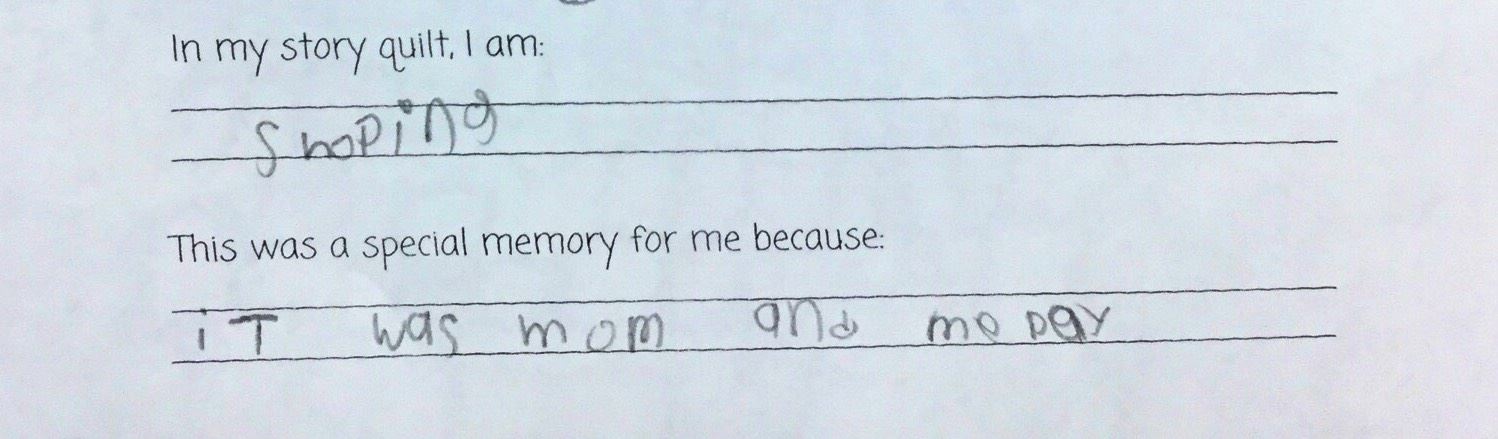 In my story quilt, I am:
Shoping
This was a special memory for me because:
iT was mom and me Day